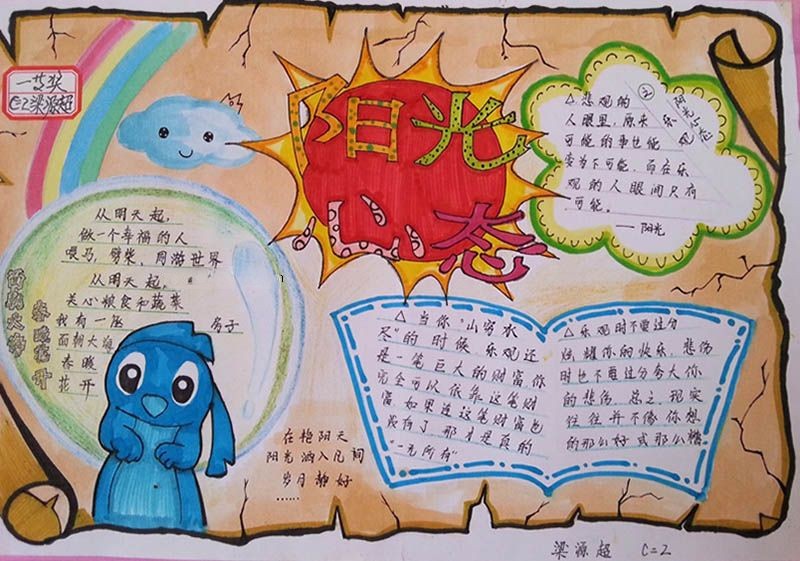 一等奖
C=2梁源超
阳光
心态
从明天起,
做一个幸福的人
喂马,劈柴,周游世界
从明天起,
关心粮食和蔬菜
我有一 房子
面朝大海
春暖
花开
面朝大海
春暖花开
在艳阳天
阳光洒入凡间
岁月静好
……
△悲观的
人眼里,原来
可能的事也能
变为不可能,而在乐
观的人眼间只有
可能。
——阳光
△当你“山穷水
尽”的时候,乐观还
是一笔巨大的财富你
完全可以依靠这笔财
富,如果连这笔财富也
没有了,那才是真的
“一无所有”
△乐观时不要过分
炫耀你的快乐,悲伤
时也不要过分夸大你
的悲伤,总之,现实
往往并不像你想
的那么好 或那么糟
梁源超 C=2